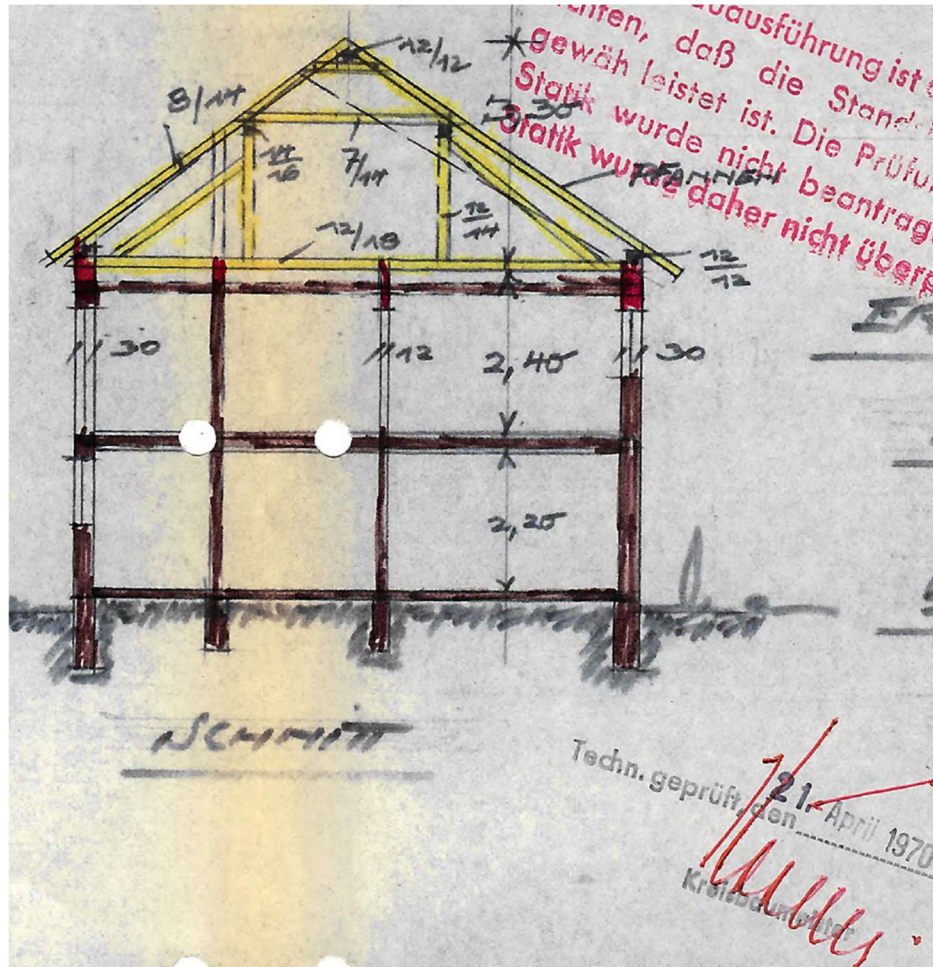 zuausführung ist
daß die
gewäh leistet ist. Die Prüfu
Statik wurde nicht beantrag
Statik wurde daher nicht überp
12/12
8/14
3,30
14/16
7/14
PFANNEN
12/14
12/18
12/12
30
12
2,40
30
2,25
SCHNITT
Techn. geprüft, den 21. April 1970
Kreisbaumeister